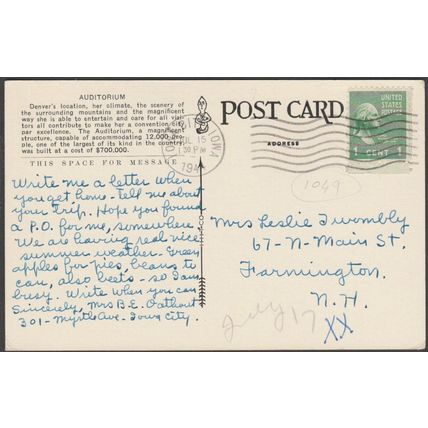 AUDITORIUM
Denver's location, her climate, the scenery of
the surrounding mountains and the magnificent
way she is able to entertain and care for all visi-
tors all contribute to make her a convention city
par excellence. The Auditorium, a magnificent
structure, capable of accommodating 12,000 peo-
ple, one of the largest of its kind in the country,
was built at a cost of $700,000.
THIS SPACE FOR MESSAGE
Write me a letter when
you get home - tell me about
your trip. Hope you found
a P.O. for me, somewhere.
We are having real nice
summer weather - Green
apples for pies, beans to
can, also beets - so I am
busy. Write when you can
Sincerely, Mrs B.E.
301 - Myrtle Ave - Iowa City.
POST CARD
ADDRESS
IOWA
JUL 15
PM
194
UNITED
STATES
POSTAGE
1 CENT 1
1049
Mrs Leslie Twombly
67 - N - Main St.
Farmington.
N.H.
July 17
XX